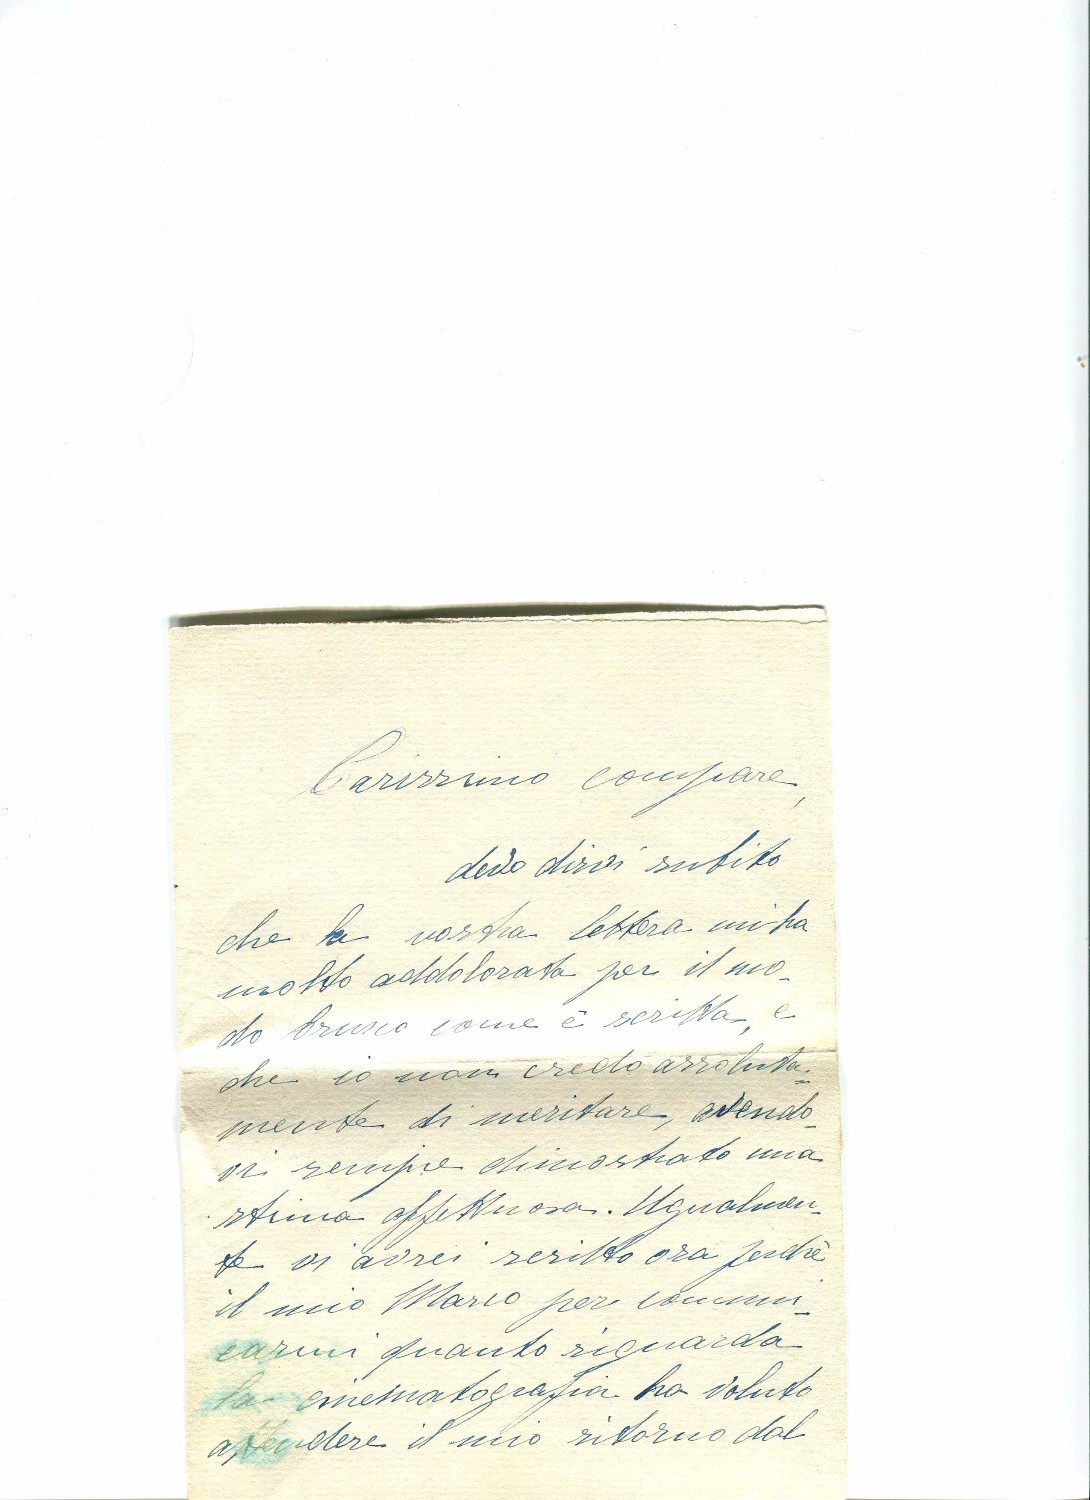 Carissimo compare,
devo dirvi subito
che la vostra lettera mi ha
molto addolorata per il mo-
do brusco come è scritta, e
che io non credo assoluta-
mente di meritare, avendo-
vi sempre dimostrato una
stima affettuosa. Ugualmen-
te vi avrei scritto ora perchè
il mio Marco per comuni-
carmi quanto riguarda
la cinematografia ha voluto
attendere il mio ritorno dal